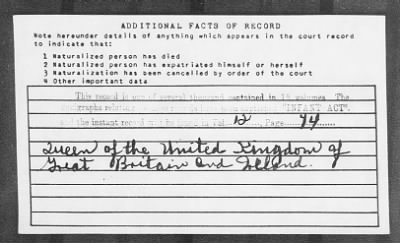 ADDITIONAL FACTS OF RECORD
Note hereunder details of anything which appears in the court record
to indicate that:
1 Naturalized person has died
2 Naturalized person has expatriated himself or herself
3 Naturalization has been cancelled by order of the court
4 Other important data
This record is one of several thousand contained in 15 volumes. The
"INFANT ACT".
and the instant record may be found in Vol. 12, Page 74
Queen of the United Kingdom of
Great Britain and Ireland.